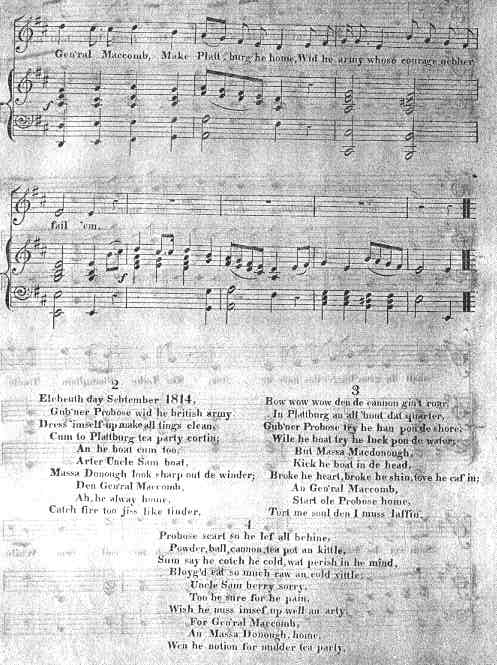 Gen'ral Maccomb, Make Platt,burg he home, Wid he army whose courage nebber
fail 'em.
2
Elebenth day Sebtember 1814,
Gub'ner Probose wid he british army
Dress imself up make all tings clean,
Cum to Plattburg tea party cortin;
An he boat cum too:
Arter Uncle Sam boat,
Massa Donough look sharp out de winder;
Den Gen'ral Maccomb,
Ah, he alway home,
Catch fire too jiss like tinder.
3
Bow wow wow den de cannon gin't roar,
In Plattburg an all 'bout dat quarter,
Gub'ner Probose try he han pon de shore;
Wile he boat try he luck pon de water;
But Massa Macdonough,
Kick he boat in de head,
Broke he heart, broke he shin, tove he caf in;
An Gen'ral Maccomb,
Start ole Probose home,
Tort me soul den I muss laffin.
4
Probose scart so he lef all behine,
Powder, ball, cannon, tea pot an kittle,
Sum say he cotch he cold, wat perish in he mind,
Bloyg'd eat so much raw an cold vittle;
Uncle Sam berry sorry,
Too be sure for he pain,
Wish he nuss imsef up well an arty,
For Gen'ral Maccomb,
An Massa Donough, home,
Wen he notion for nudder tea party.